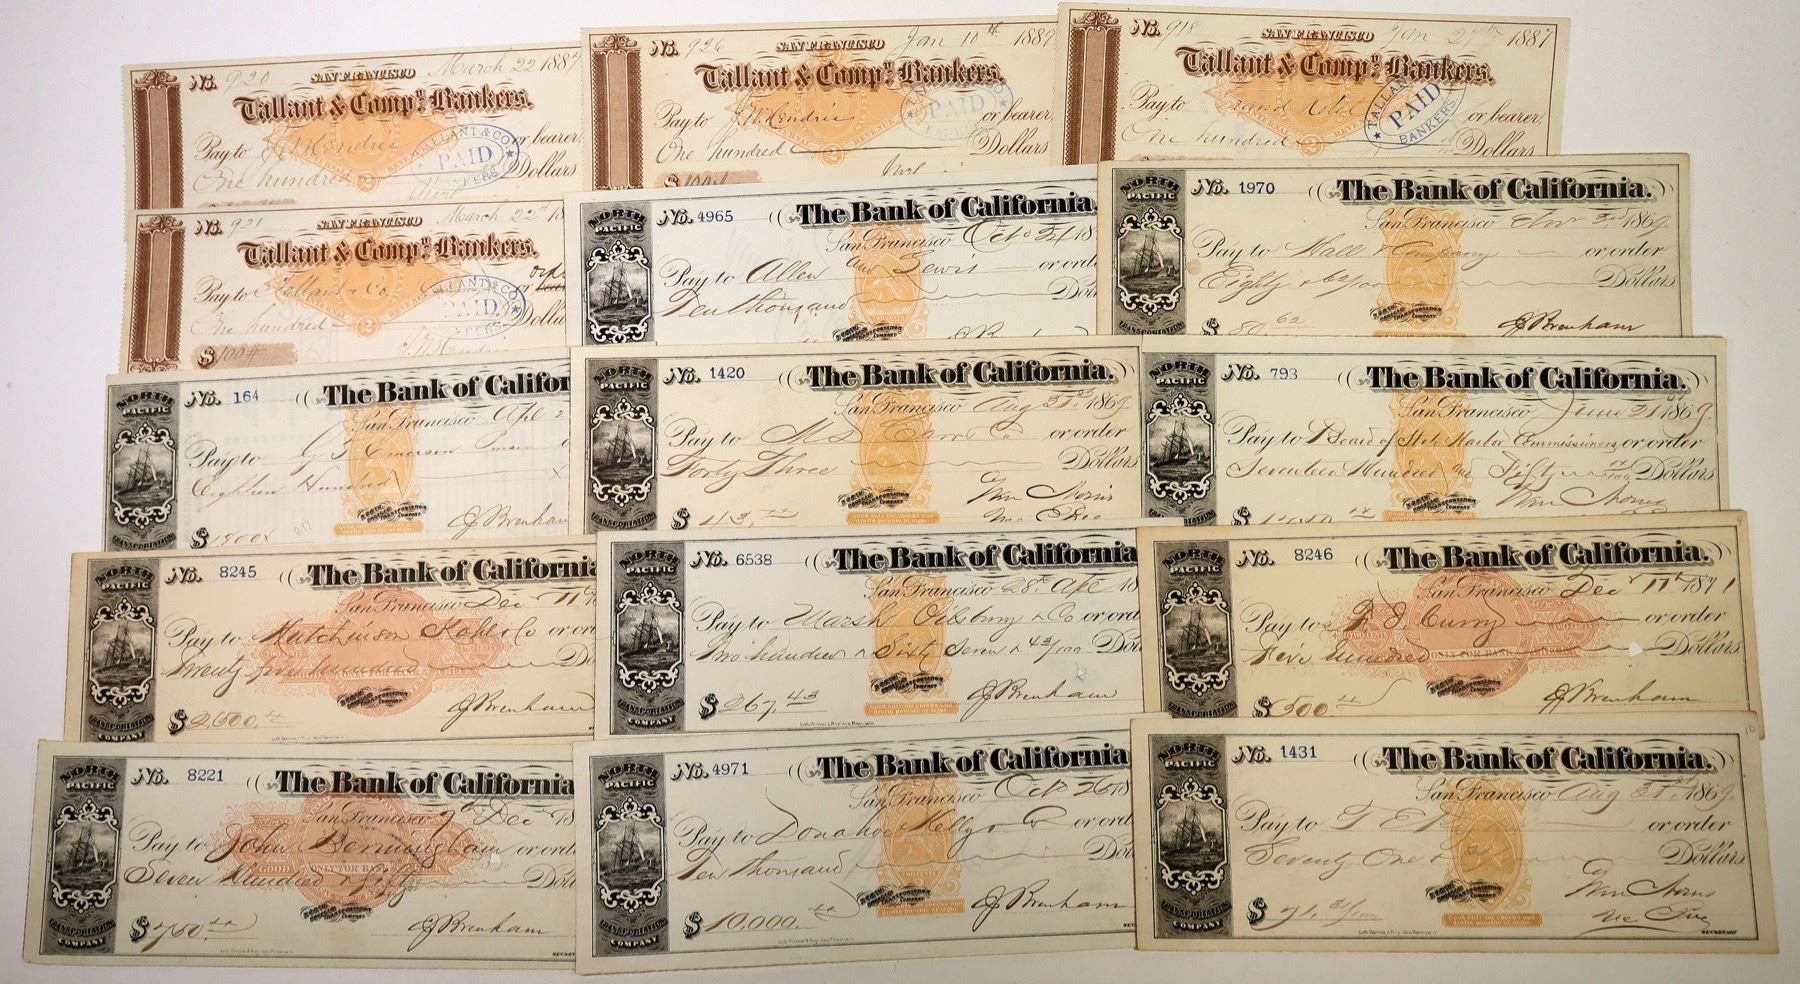 No. 920 SAN FRANCISCO March 22 1887
Tallant & Compy. Bankers.
Pay to J W Hendrie or bearer
One hundred Dollars
TALLANT & CO.
PAID
BANKERS
No. 926 SAN FRANCISCO Jan 10th 1889
Tallant & Compy. Bankers.
Pay to J W Hendrie or bearer
One hundred Dollars
PAID
No. 918 SAN FRANCISCO Jan 27th 1887
Tallant & Compy. Bankers.
Pay to or bearer
One hundred Dollars
TALLANT
PAID
BANKERS
No. 921 SAN FRANCISCO March 22d 18
Tallant & Compy. Bankers.
Pay to Tallant & Co. or
One hundred Dolla
TALLANT & CO.
PAID
BANKERS
$100
NORTH PACIFIC
No. 4965 The Bank of California.
San Francisco Oct 24 18
Pay to Allen and Lewis or ord
Ten thousand Dol
NORTH PACIFIC
TRANSPORTATION
No. 1970 The Bank of California.
San Francisco Nov 3rd 1869
Pay to Hall & Company or order
Eighty & 62/100 Dollars
$ 80 62
J Brenham
NORTH PACIFIC
TRANSPORTATION
No. 164 The Bank of Califor
San Francisco Apl 2
Pay to G T Emerson
Eighteen Hundred
$ 1800
J Brenham
NORTH PACIFIC
TRANSPORTATION
No. 1420 The Bank of California.
San Francisco Aug 31st 1869.
Pay to or order
Forty Three Dollars
$ 43
Wm Norris
NORTH PACIFIC
TRANSPORTATION
No. 793 The Bank of California.
San Francisco June 21 1869.
Pay to Board of State Harbor Commissioners or order
Seventeen Hundred and Fifty Dollars
Wm Norris
NORTH PACIFIC
TRANSPORTATION
COMPANY
No. 8245 The Bank of California
San Francisco Dec 11th
Pay to Hutchinson Kohl & Co or or
Twenty five hundred Do
$ 2,500.
J Brenham
NORTH PACIFIC
TRANSPORTATION
COMPANY
No. 6538 The Bank of California
San Francisco 28th Apl 18
Pay to Marsh Pilsbury & Co or ord
Two hundred & Sixty Seven & 43/100 Dol
$ 267.43
J Brenham
NORTH PACIFIC
TRANSPORTATION
No. 8246 The Bank of California.
San Francisco Dec 11th 1871
Pay to Curry or order
Five hundred Dollars
ONLY FOR BANK CHECK
$ 500
J Brenham
NORTH PACIFIC
TRANSPORTATION
COMPANY
No. 8221 The Bank of California
San Francisco 9 Dec 18
Pay to John Bermingham or ord
Seven Hundred & Fifty Doll
GOOD ONLY FOR BANK
$ 750.
J Brenham
NORTH PACIFIC
TRANSPORTATION
COMPANY
No. 4971 The Bank of California
San Francisco Oct 26 18
Pay to Donahoe Kelly & Co or ord
Ten thousand Dol
$ 10,000.
J Brenham
NORTH PACIFIC
TRANSPORTATION
COMPANY
No. 1431 The Bank of California.
San Francisco Aug 31st 1869.
Pay to or order
Seventy One & Dollars
Good only for checks and
drafts payable at sight
Wm Norris
SECRETARY